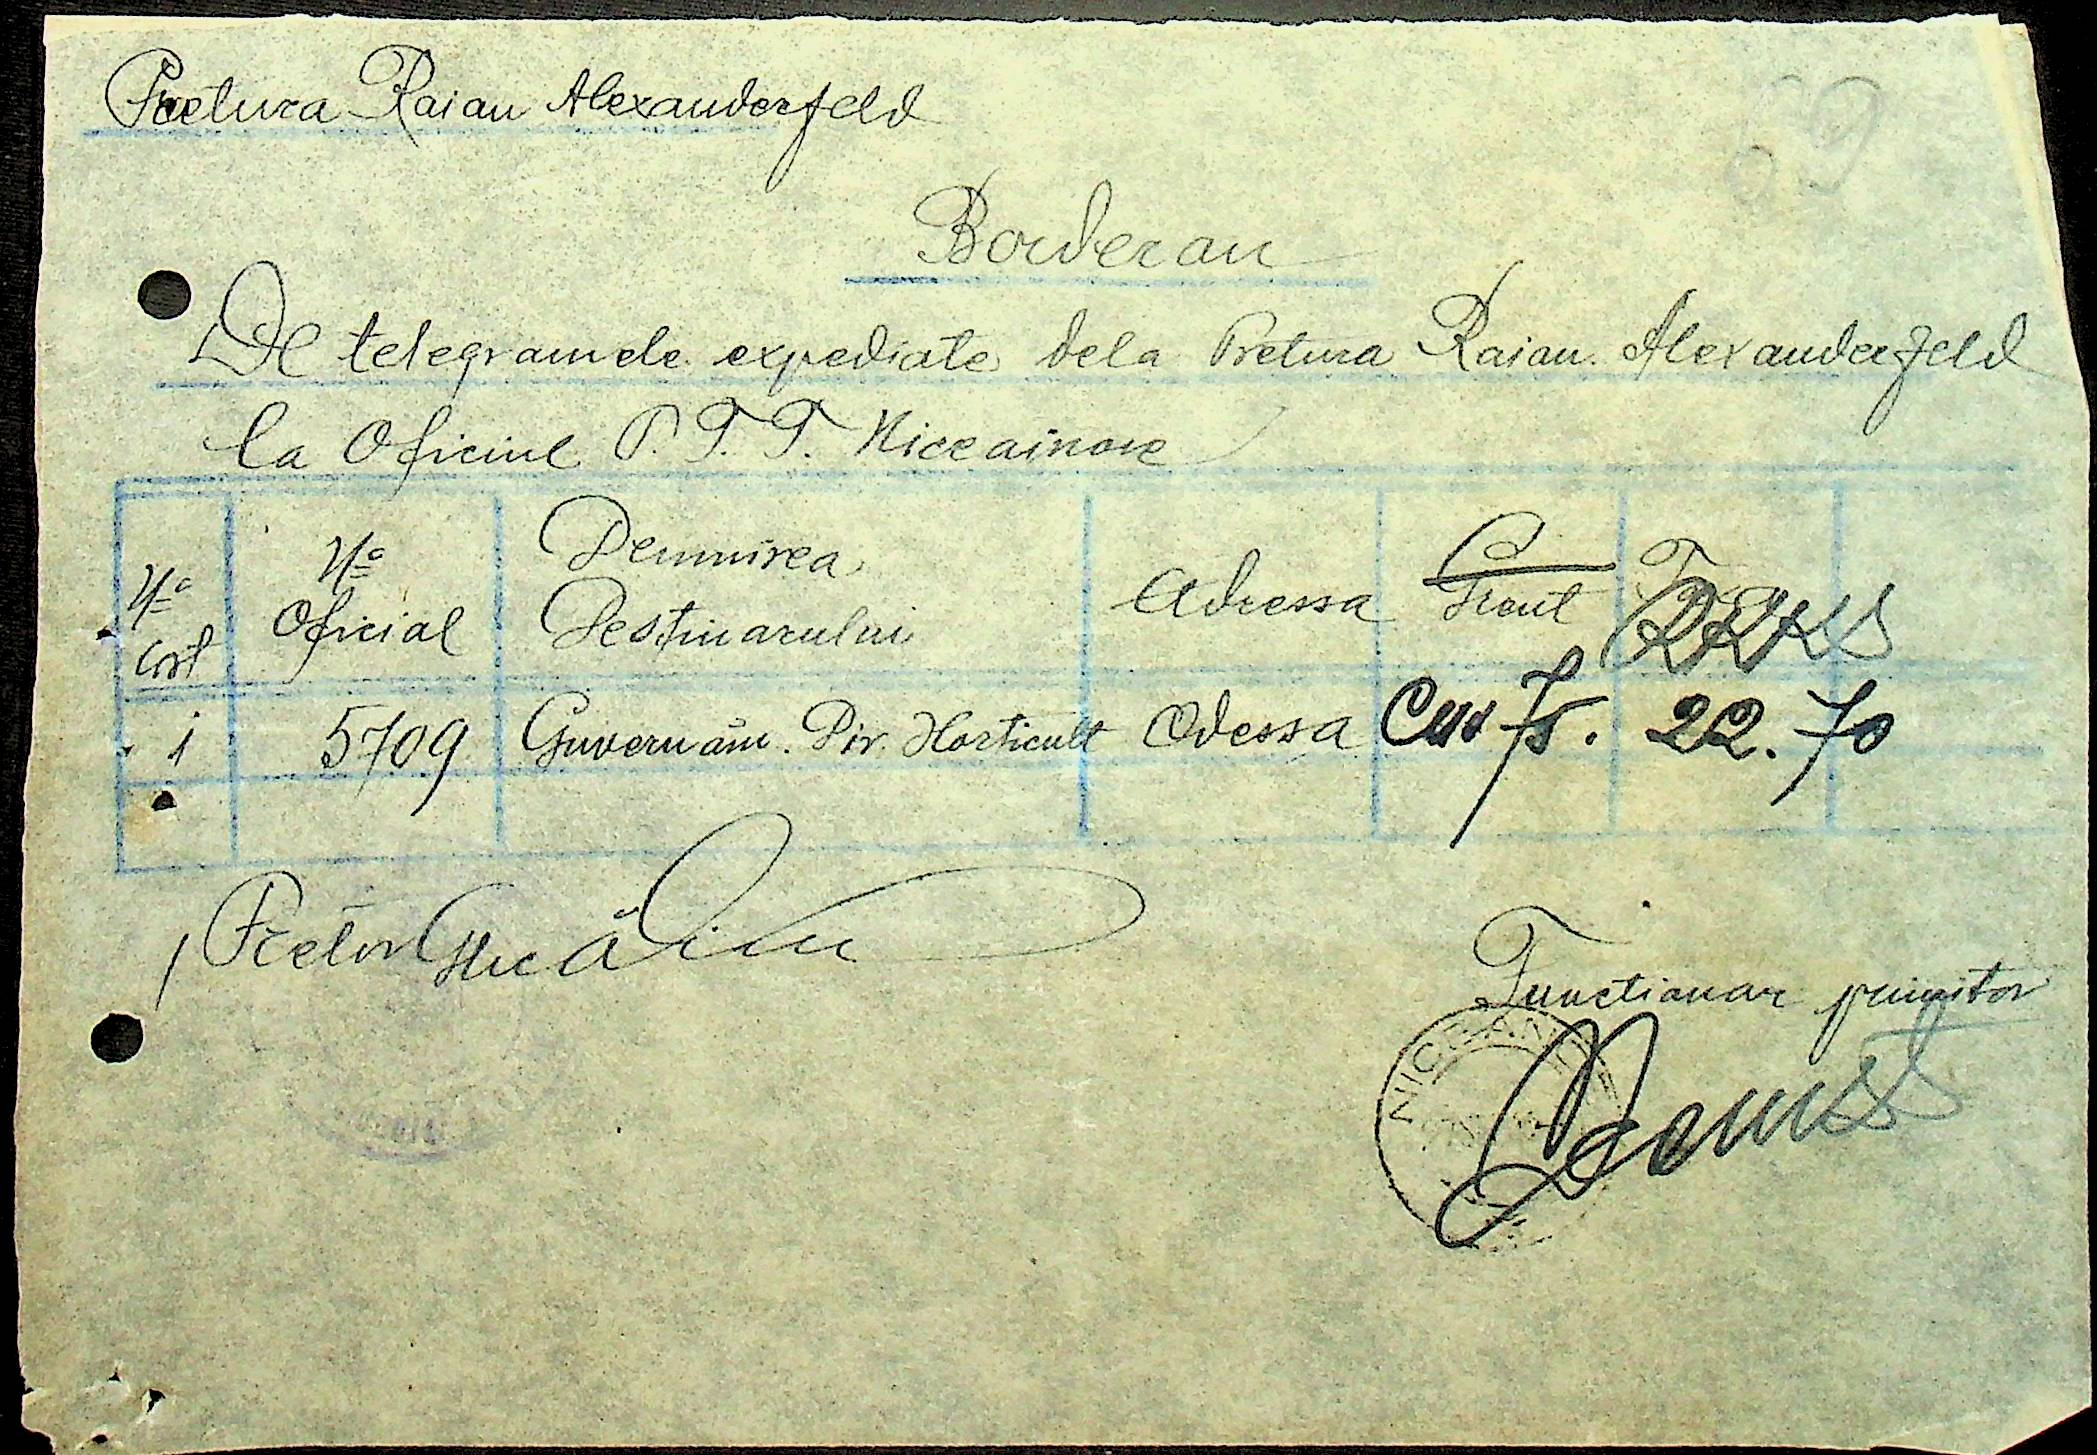 Pretura Raian Alexanderfeld
69
Borderau
De telegramele expediate dela Pretura Raian Alexanderfeld
la Oficiul P.T.T. Niceainove
No cort No Oficial Denmirea Destinarului Adressa Taxa
1 5709 Guvernăm. Dir. Horticult Odessa Cuv 75. 22.70
Pretor
Functionar primitor